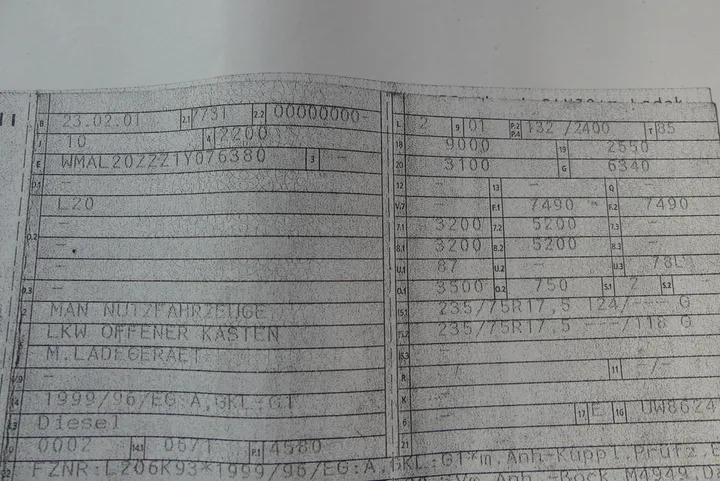 B 23.02.01 2.1 /731 2.2 00000000-
J 10 4 2200
E WMAL20ZZZ1Y076380 3 -
D.1 -
L20
D.2 -
-
-
-
2 MAN NUTZFAHRZEUGE
LKW OFFENER KASTEN
M.LADEGERAET
V.9 -
14 1999/96/EG:A,GKL:G1
Diesel
0002 14.1 0671 P.1 4580
22 FZNR:L206K93*1999/96/EG:A,GKL:G1*m.Anh-Kuppl.Prüfz.E
L 2 9 01 P.2 P.4 132 /2400 T 85
18 9000 19 2550
20 3100 G 6340
12 - 13 - Q -
V.7 - F.1 7490 F.2 7490
7.1 3200 7.2 5200 7.3 -
8.1 3200 8.2 5200 8.3 -
U.1 87 U.2 - U.3 78
O.1 3500 O.2 750 S.1 2 S.2
15.1 235/75R17,5 124/--- G
15.2 235/75R17,5 ---/118 G
15.3 -
R 11 -/-
K -
6 - 17 E 16 UW8624
21
Anh.-Bock.M4949,0